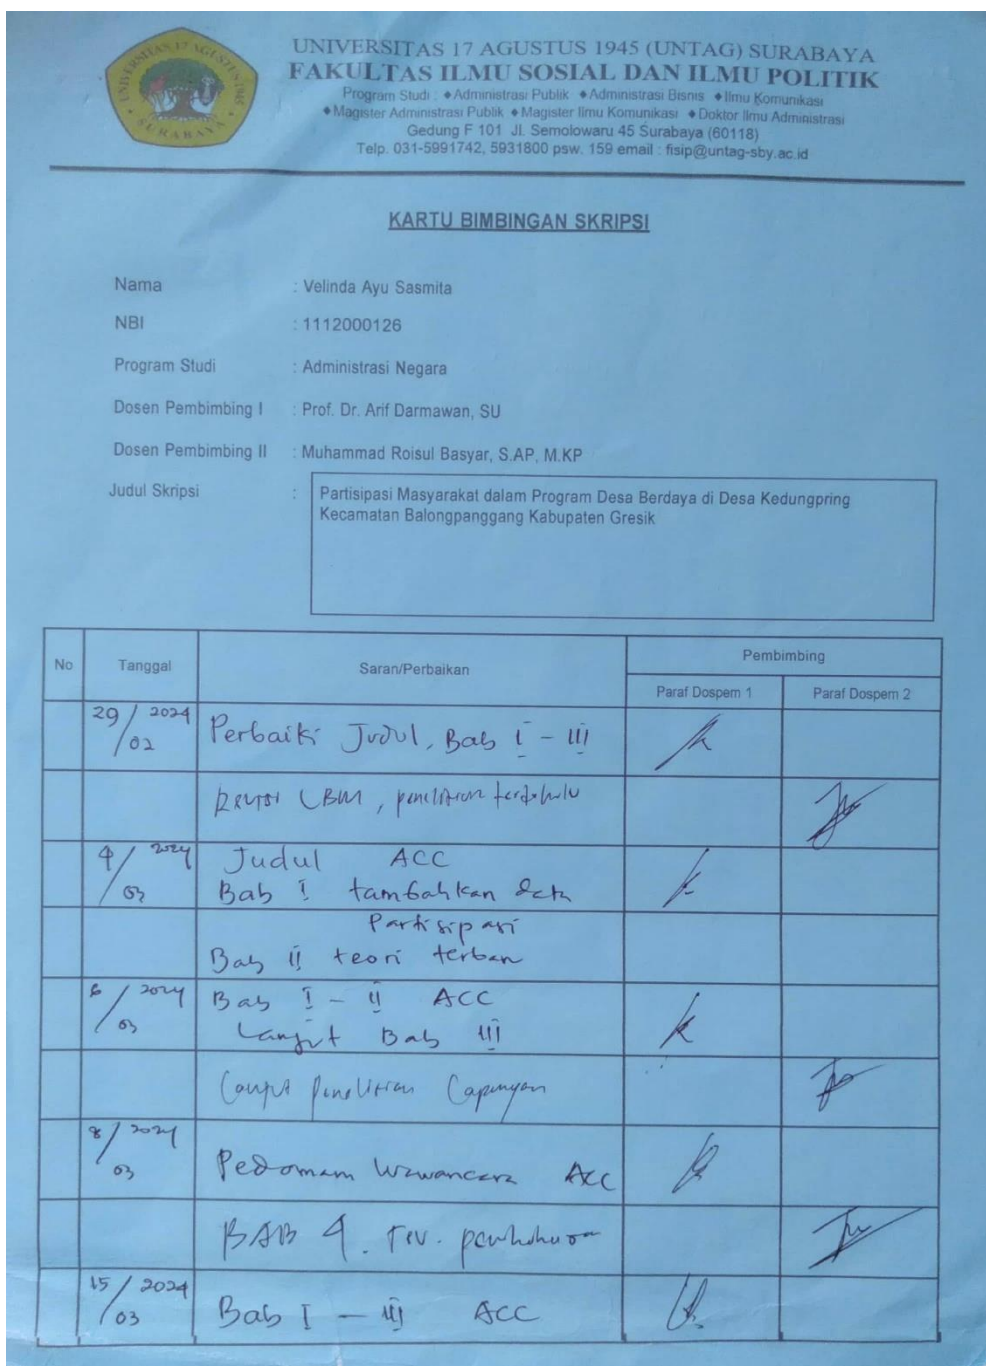 UNIVERSITAS 17 AGUSTUS 1945
SURABAYA
UNIVERSITAS 17 AGUSTUS 1945 (UNTAG) SURABAYA
FAKULTAS ILMU SOSIAL DAN ILMU POLITIK
Program Studi : ◆Administrasi Publik ◆Administrasi Bisnis ◆Ilmu Komunikasi
◆Magister Administrasi Publik ◆Magister Ilmu Komunikasi ◆Doktor Ilmu Administrasi
Gedung F 101 Jl. Semolowaru 45 Surabaya (60118)
Telp. 031-5991742, 5931800 psw. 159 email : fisip@untag-sby.ac.id
KARTU BIMBINGAN SKRIPSI
Nama : Velinda Ayu Sasmita
NBI : 1112000126
Program Studi : Administrasi Negara
Dosen Pembimbing I : Prof. Dr. Arif Darmawan, SU
Dosen Pembimbing II : Muhammad Roisul Basyar, S.AP, M.KP
Judul Skripsi : Partisipasi Masyarakat dalam Program Desa Berdaya di Desa Kedungpring
Kecamatan Balongpanggang Kabupaten Gresik
No Tanggal Saran/Perbaikan Pembimbing
Paraf Dospem 1 Paraf Dospem 2
29/02 2024 Perbaiki Judul, Bab I - III
Revisi LBM, penelitian terdahulu
4/03 2024 Judul ACC
Bab I tambahkan data
Partisipasi
Bab II teori
6/03 2024 Bab I - II ACC
Lanjut Bab III
Lanjut penelitian
8/03 2024 Pedoman wawancara ACC
BAB 4.
15/03 2024 Bab I - III ACC